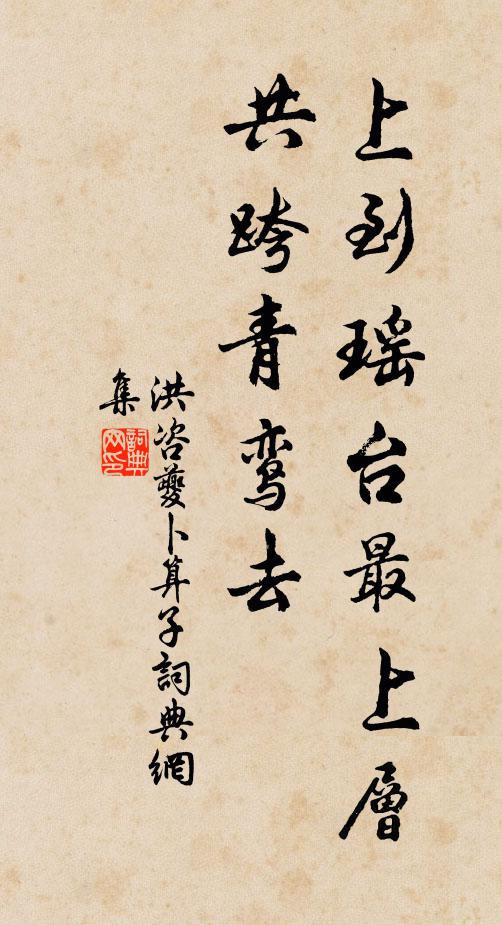 上到瑶台最上層
共跨青鸾去
洪咨夔卜算子詞典網
集
詞典
网印